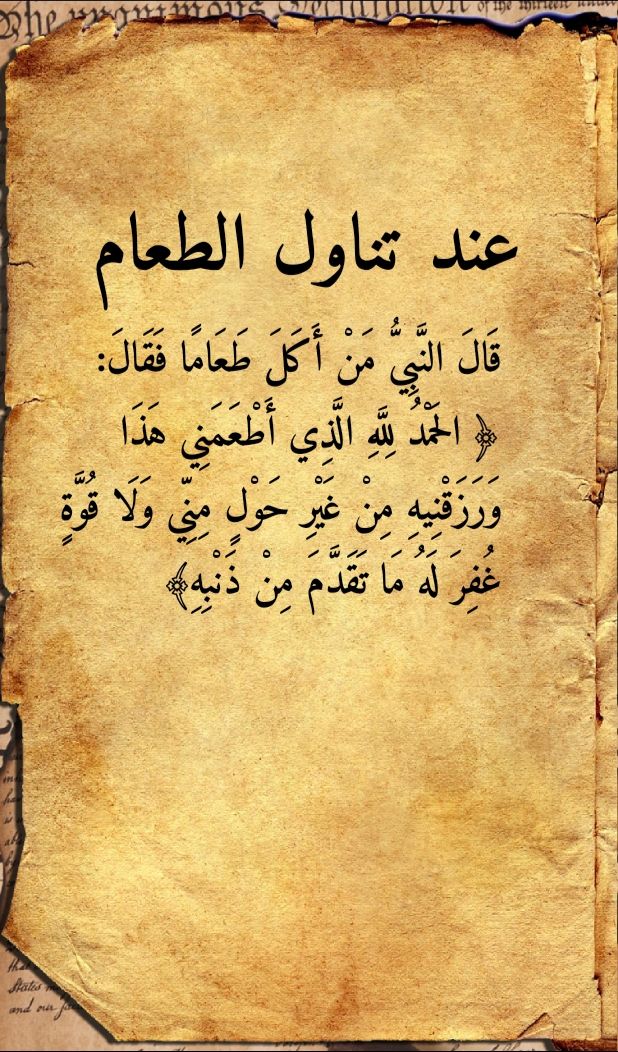 The unanimous Declaration of the thirteen united
عند تناول الطعام
قَالَ النَّبِيُّ مَنْ أَكَلَ طَعَامًا فَقَالَ:
﴿ الحَمْدُ لِلَّهِ الَّذِي أَطْعَمَنِي هَذَا
وَرَزَقْنِيهِ مِنْ غَيْرِ حَوْلٍ مِنِّي وَلَا قُوَّةٍ
غُفِرَ لَهُ مَا تَقَدَّمَ مِنْ ذَنْبِهِ﴾
that
States
and our